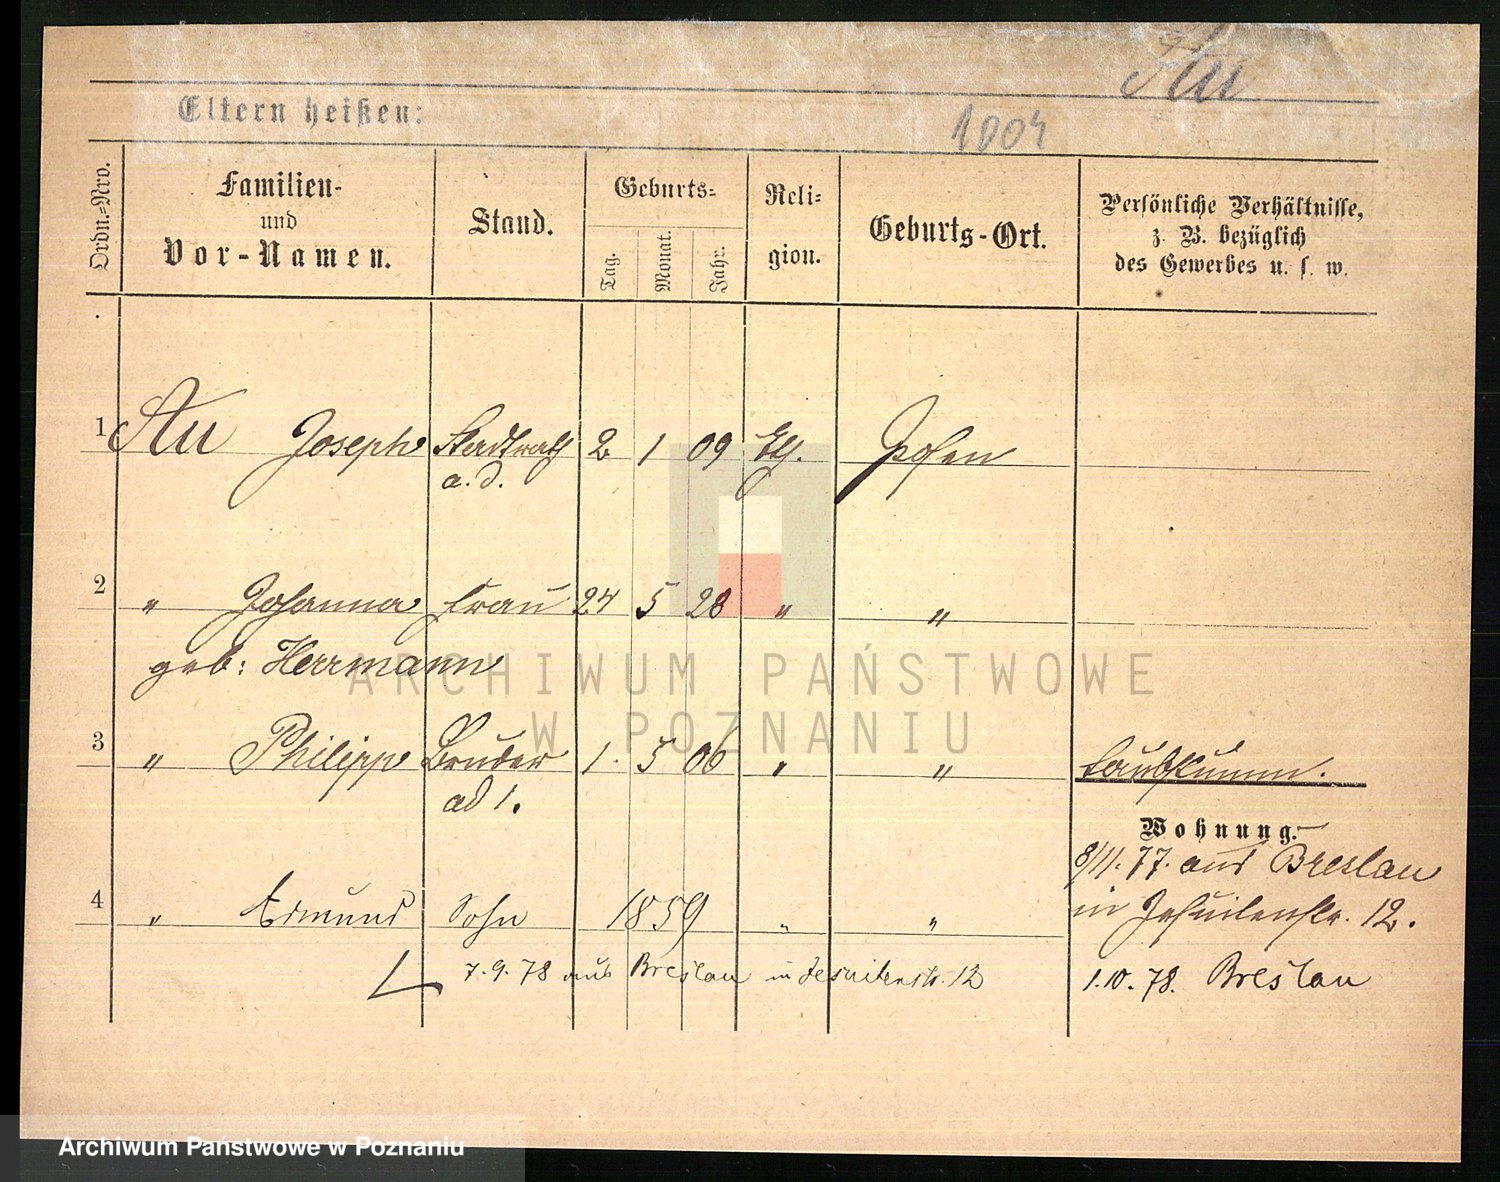 Au
Eltern heißen:
1004
Ordn.=Nro.
Familien-
und
Vor-Namen.
Stand.
Geburts=
Tag.
Monat.
Jahr.
Reli=
gion.
Geburts-Ort.
Persönliche Verhältnisse,
z. B. bezüglich
des Gewerbes u. s. w.
1 Au Joseph Stadtrath 2 1 09 Posen
a. D.
2 " Johanna Frau 24 5 28 " "
geb: Herrmann
ARCHIWUM PAŃSTWOWE
W POZNANIU
3 " Philipp Bruder 1. 5 06 " " taubstumm.
ad 1.
Wohnung.
8/11. 77. aus Breslau
4 " Edmund Sohn 1859 " " in Jesuitenstr. 12.
7. 9. 78 aus Breslau in Jesuitenstr. 12 1. 10. 78. Breslau
Archiwum Państwowe w Poznaniu